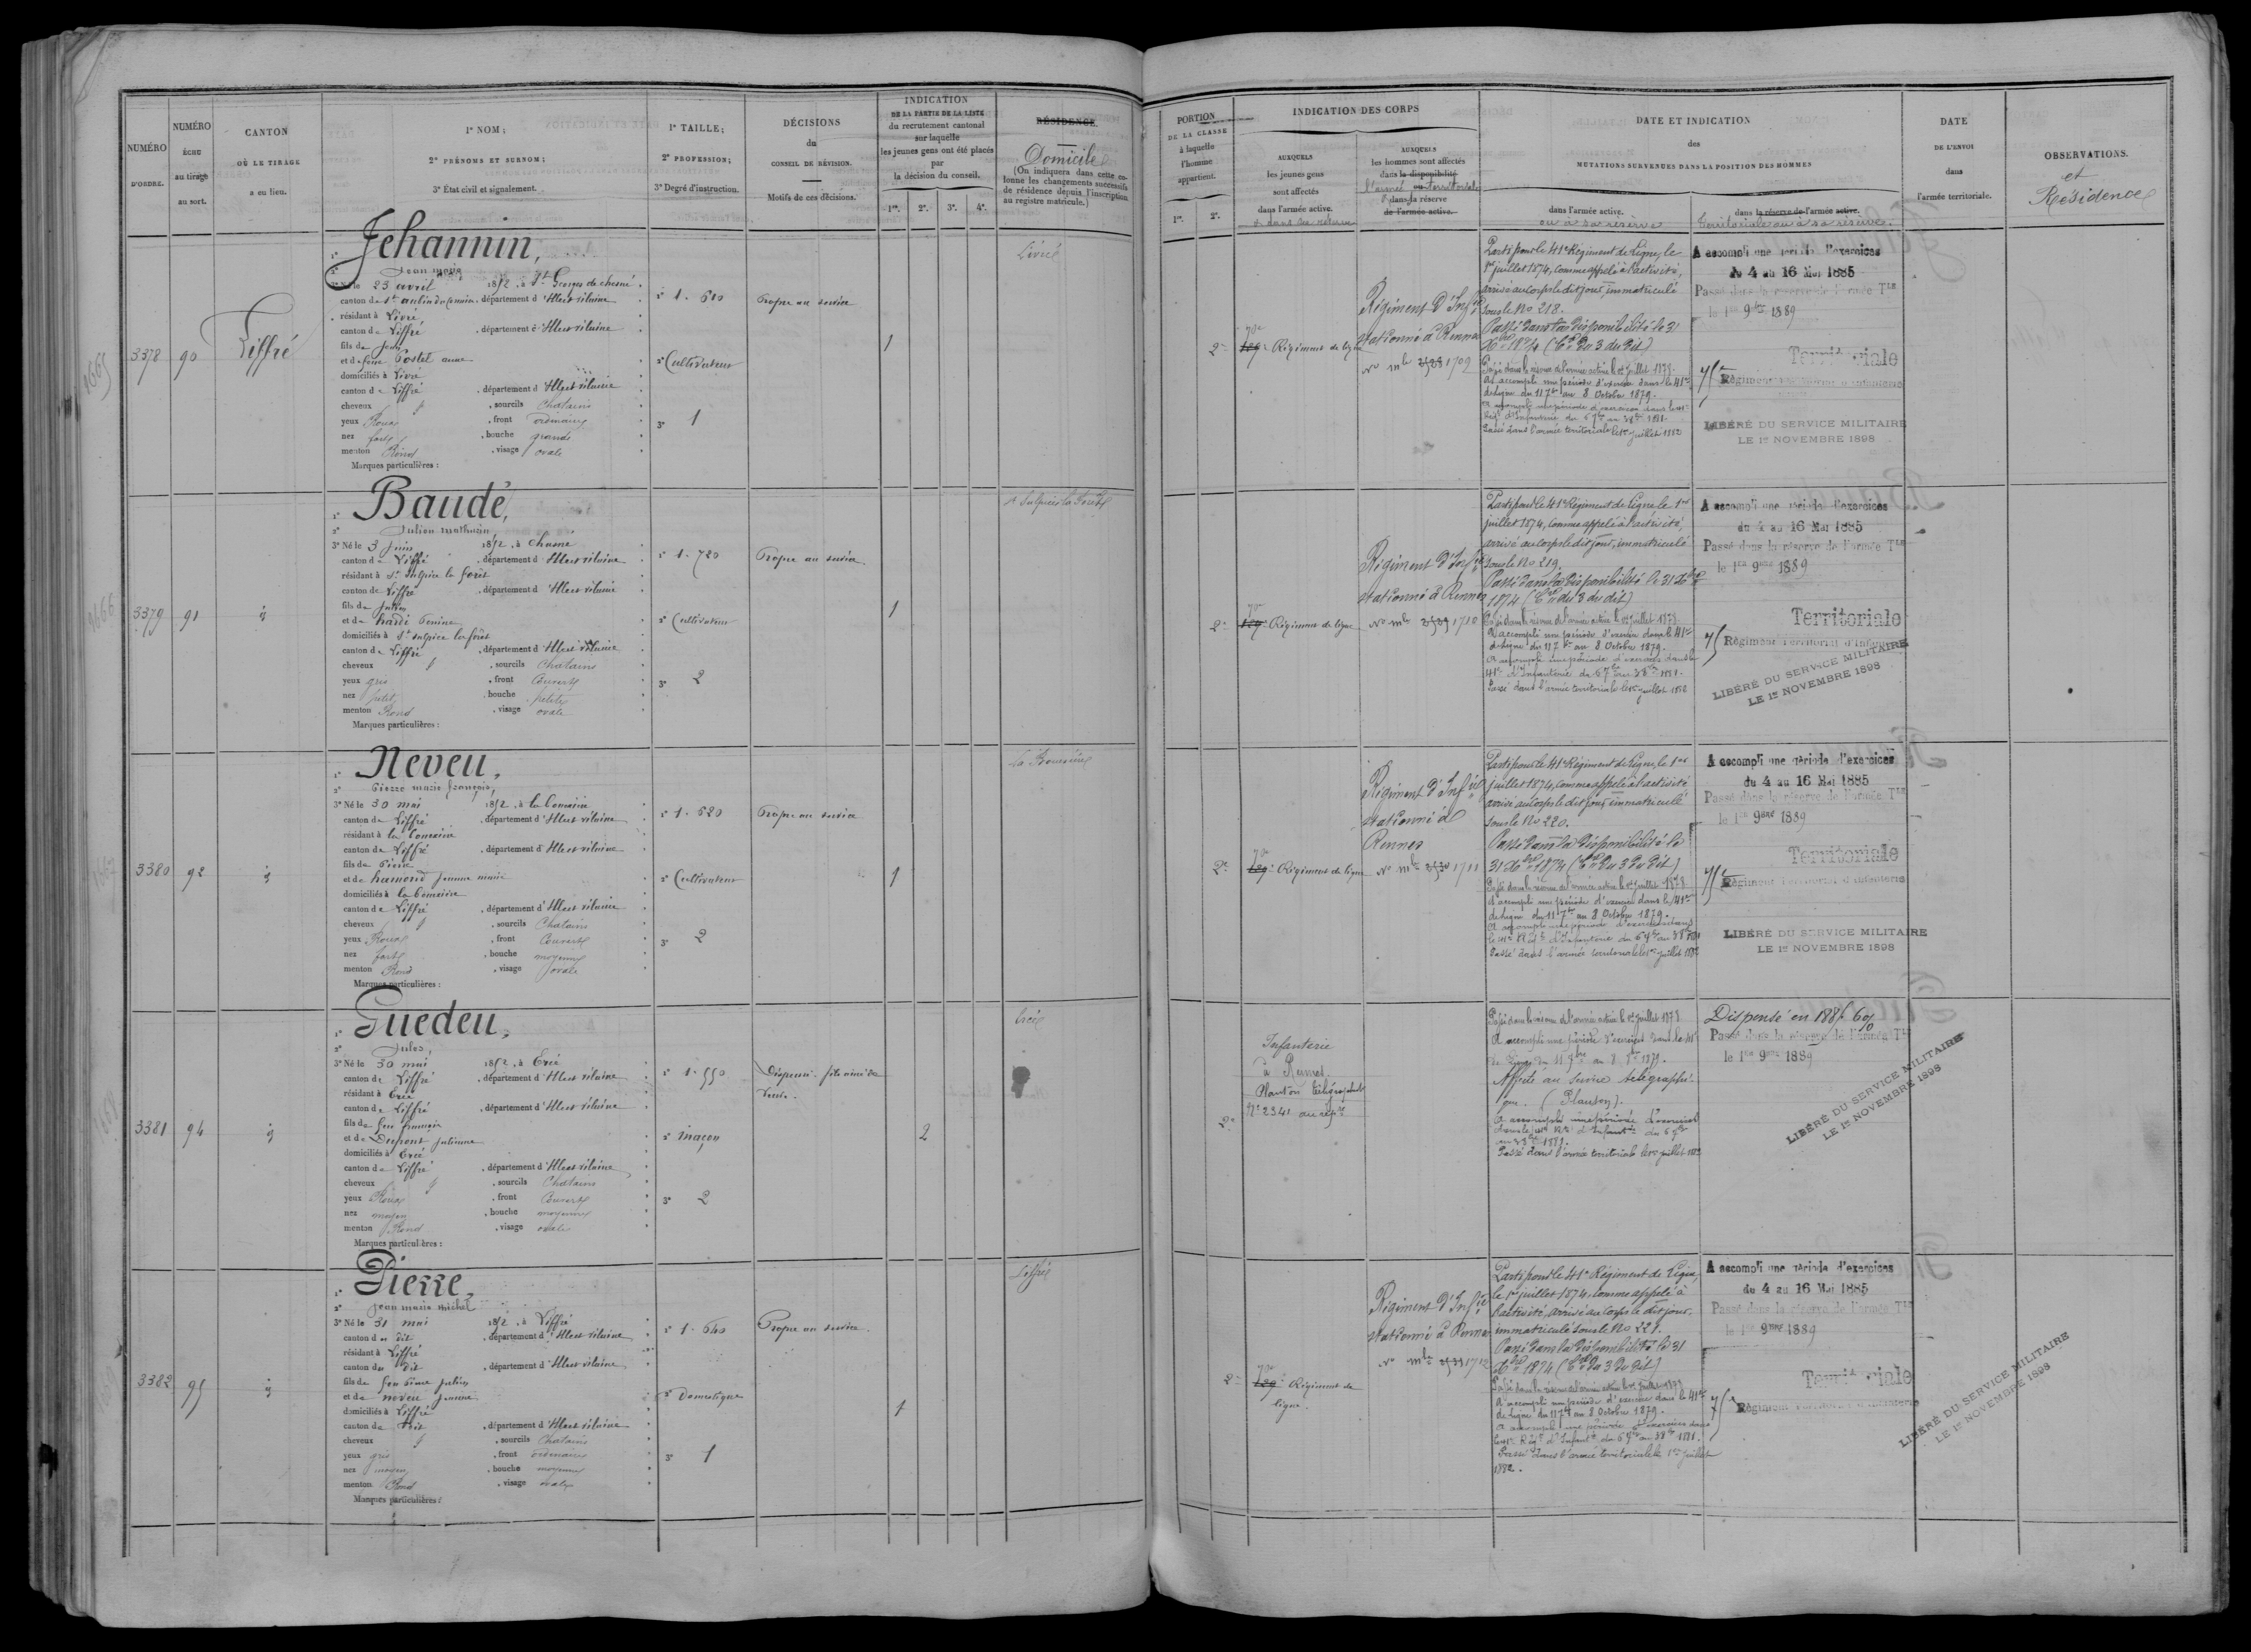 NUMÉRO
D'ORDRE.
NUMÉRO
ÉCHU
au tirage
au sort.
CANTON
OÙ LE TIRAGE
a eu lieu.
1° NOM;
2° PRÉNOMS ET SURNOM;
3° État civil et signalement.
1° TAILLE;
2° PROFESSION;
3° Degré d'instruction.
DÉCISIONS
du
CONSEIL DE RÉVISION.
Motifs de ces décisions.
INDICATION
DE LA PARTIE DE LA LISTE
du recrutement cantonal
sur laquelle
les jeunes gens ont été placés
par
la décision du conseil.
1re. 2e. 3e. 4e.
RÉSIDENCE.
Domicile
(On indiquera dans cette co-
lonne les changements successifs
de résidence depuis l'inscription
au registre matricule.)
PORTION
DE LA CLASSE
à laquelle
l'homme
appartient.
1re. 2e.
INDICATION DES CORPS
AUXQUELS
les jeunes gens
sont affectés
dans l'armée active.
AUXQUELS
les hommes sont affectés
dans la disponibilité
ou
dans la réserve
de l'armée active.
DATE ET INDICATION
des
MUTATIONS SURVENUES DANS LA POSITION DES HOMMES
dans l'armée active.
ou à sa réserve
dans la réserve de l'armée active.
territoriale ou à sa réserve.
DATE
DE L'ENVOI
dans
l'armée territoriale.
OBSERVATIONS.
et
Résidence
3378 90 Liffré
1° Jehannin,
2° Jean marie
3° Né le 23 avril 1852, à St Georges de chesné
canton de St aubin du Cormier, département d'Illeet vilaine
résidant à Livré
canton de Liffré, département d'Illeet vilaine
fils de Jean
et de feue Postel anne
domiciliés à Livré
canton de Liffré, département d'Illeet vilaine
cheveux, sourcils Chatains
yeux Roux, front ordinaire
nez fort, bouche grande
menton Rond, visage ovale
Marques particulières :
1° 1.610
2° Cultivateur
3° 1
Propre au service
1
Livré
2e
Régiment de ligne
Régiment d'Infie
stationné à Rennes
No mle 1709
Parti pour le 41e Régiment de Ligne, le
1er juillet 1874, comme appelé à l'activité,
arrivé au corps le dit jour, immatriculé
sous le No 218.
Passé dans la disponibilité le 31
Xbre 1874 (Con du 3 du dit)
Passé dans la réserve de l'armée active le 1er juillet 1878.
A accompli une période d'exercice dans le 41e
de Ligne du 11 7bre au 8 Octobre 1879.
Passé dans l'armée territoriale le 1er juillet 1882
A accompli une période d'exercices
du 4 au 16 Mai 1885
Passé dans la réserve de l'armée Tle
le 1er 9bre 1889
Territoriale
75e Régiment Territorial d'Infanterie
LIBÉRÉ DU SERVICE MILITAIRE
LE 1er NOVEMBRE 1898
3379 91
1° Baudé,
2° Julien mathurin
3° Né le 3 juin 1852, à Chasné
canton de Liffré, département d'Illeet vilaine
résidant à St Sulpice la forêt
canton de Liffré, département d'Illeet vilaine
fils de Julien
et de hardé Perrine
domiciliés à St Sulpice la forêt
canton de Liffré, département d'Illeet vilaine
cheveux, sourcils Chatains
yeux gris, front Couvert
nez petit, bouche petite
menton Rond, visage ovale
Marques particulières :
1° 1.720
2° Cultivateur
3° 2
Propre au service
1
St Sulpice la Forêt
2e
Régiment de ligne
Régiment d'Infie
stationné à Rennes
No mle 1710
Parti pour le 41e Régiment de Ligne, le 1er
juillet 1874, comme appelé à l'activité,
arrivé au corps le dit jour, immatriculé
sous le No 219.
Passé dans la disponibilité le 31 Xbre
1874 (Con du 3 du dit)
Passé dans la réserve de l'armée active le 1er juillet 1878.
A accompli une période d'exercice dans le 41e
de Ligne du 11 7bre au 8 Octobre 1879.
A accompli une période d'exercices dans le
Passé dans l'armée territoriale le 1er juillet 1882
A accompli une période d'exercices
du 4 au 16 Mai 1885
Passé dans la réserve de l'armée Tle
le 1er 9bre 1889
Territoriale
75 Régiment Territorial d'Infanterie
LIBÉRÉ DU SERVICE MILITAIRE
LE 1er NOVEMBRE 1898
3380 92
1° Neveu,
2° Pierre marie françois,
3° Né le 30 mai 1852, à la Bouexière
canton de Liffré, département d'Illeet vilaine
résidant à la Bouexière
canton de Liffré, département d'Illeet vilaine
fils de Pierre
et de hamond Jeanne marie
domiciliés à la Bouexière
canton de Liffré, département d'Illeet vilaine
cheveux, sourcils Chatains
yeux Roux, front Couvert
nez fort, bouche moyenne
menton Rond, visage ovale
Marques particulières :
1° 1.620
2° Cultivateur
3° 2
Propre au service
1
La Bouexière
2e
Régiment de ligne
Régiment d'Infie
stationné à
Rennes
No mle 1711
Parti pour le 41e Régiment de Ligne, le 1er
juillet 1874, comme appelé à l'activité
arrivé au corps le dit jour, immatriculé
sous le No 220.
Passé dans la disponibilité le
31 Xbre 1874 (Con du 3 du dit)
Passé dans la réserve de l'armée active le 1er juillet 1878
A accompli une période d'exercice dans le 41e
de Ligne du 11 7bre au 8 Octobre 1879.
Passé dans l'armée territoriale le 1er juillet 1882
A accompli une période d'exercices
du 4 au 16 Mai 1885
Passé dans la réserve de l'armée Tle
le 1er 9bre 1889
Territoriale
75e Régiment Territorial d'Infanterie
LIBÉRÉ DU SERVICE MILITAIRE
LE 1er NOVEMBRE 1898
3381 94
1° Guedeu,
2° Jules,
3° Né le 30 mai 1852, à Ercé
canton de Liffré, département d'Illeet vilaine
résidant à Ercé
canton de Liffré, département d'Illeet vilaine
fils de feu françois
et de Dupont Julienne
domiciliés à Ercé
canton de Liffré, département d'Illeet vilaine
cheveux, sourcils Chatains
yeux Roux, front Couvert
nez moyen, bouche moyenne
menton Rond, visage ovale
Marques particulières :
1° 1.550
2° maçon
3° 2
Dispensé. fils aîné de
veuve.
2
Ercé
2e
Infanterie
à Rennes
Planton télégraphiste
No 2341 au
Passé dans la réserve de l'armée active le 1er juillet 1878
A accompli une période d'exercices dans le 41e
de Ligne du 11 7bre au 8 8bre 1879.
Affecté au service télégraphi-
que. (Planton).
A accompli une période d'exercices
Passé dans l'armée territoriale le 1er juillet 1882
Dispensé en 1885 6%
Passé dans la réserve de l'armée Tle
le 1er 9bre 1889
LIBÉRÉ DU SERVICE MILITAIRE
LE 1er NOVEMBRE 1898
3382 95
1° Pierre,
2° Jean marie michel
3° Né le 31 mai 1852, à Liffré
canton du dit, département d'Illeet vilaine
résidant à Liffré
canton du dit, département d'Illeet vilaine
fils de feu
et de neveu Jeanne
domiciliés à Liffré
canton du dit, département d'Illeet vilaine
cheveux, sourcils Chatains
yeux gris, front ordinaire
nez moyen, bouche moyenne
menton Rond, visage ovale
Marques particulières :
1° 1.640
2° Domestique
3° 1
Propre au service.
1
Liffré
2e
Régiment de
ligne.
Régiment d'Infie
stationné à Rennes
No mle 1712
Parti pour le 41e Régiment de Ligne,
le 1er juillet 1874, comme appelé à
l'activité, arrivé au corps le dit jour,
immatriculé sous le No 221.
Passé dans la disponibilité le 31
Xbre 1874 (Con du 3 du dit)
A accompli une période d'exercice dans le 41e
de Ligne du 11 7bre au 8 Octobre 1879.
A accompli une période d'exercices dans
Passé dans l'armée territoriale le 1er juillet
1882.
A accompli une période d'exercices
du 4 au 16 Mai 1885
Passé dans la réserve de l'armée Tle
le 1er 9bre 1889
Territoriale
75e Régiment Territorial d'Infanterie
LIBÉRÉ DU SERVICE MILITAIRE
LE 1er NOVEMBRE 1898